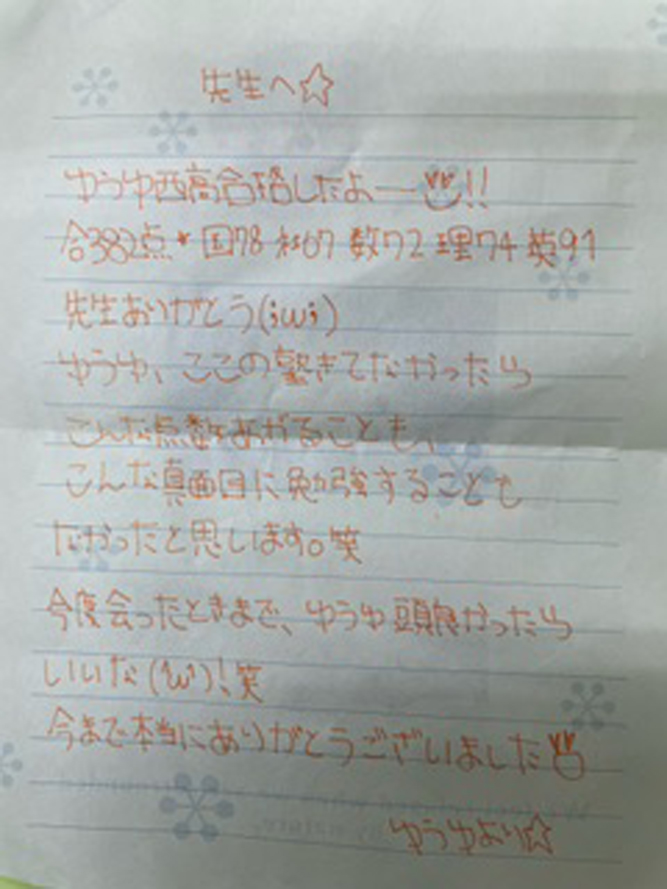 先生へ☆
ゆうゆ西高合格したよー!!
合382点*国78 社67 数72 理74 英91
先生ありがとう(;ω;)
ゆうゆ、ここの塾きてなかったら
こんな点数あがることも、
こんな真面目に勉強することも
なかったと思します。笑
今度会ったときまで、ゆうゆ頭良かったら
いいな('ω')!笑
今まで本当にありがとうございました
ゆうゆより☆